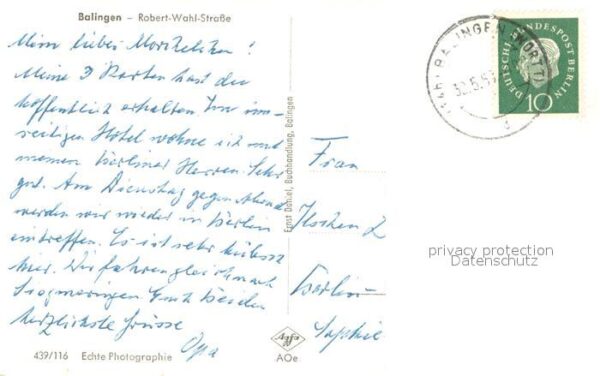 Balingen – Robert-Wahl-Straße
Mein liebes
Meine 3 Karten hast du
hoffentlich erhalten. Im um-
seitigen Hotel wohne ich mit
meinen Berliner Herren. Sehr
gut. Am Dienstag gegen Abend
werden wir wieder in Berlin
eintreffen. Es ist sehr hübsch
hier. Wir fahren gleich nach
Sigmaringen. Euch beiden
herzlichste Grüsse
Opa
439/116 Echte Photographie
Ernst Daniel, Buchhandlung, Balingen
Agfa
AOe
Frau
Berlin
Sophie
BALINGEN (WÜRTT)
DEUTSCHE BUNDESPOST BERLIN
10
privacy protection
Datenschutz